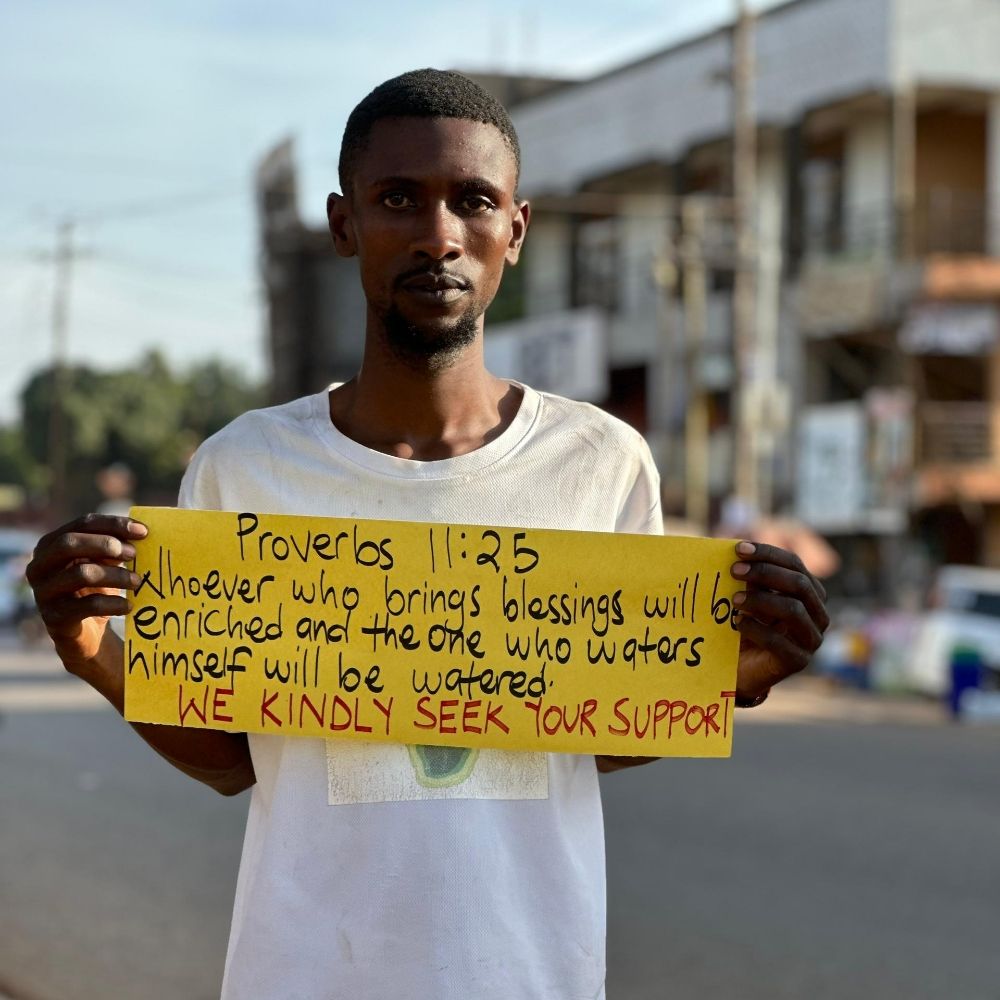 Proverbs 11:25
Whoever who brings blessings will be
enriched and the one who waters
himself will be watered.
WE KINDLY SEEK YOUR SUPPORT